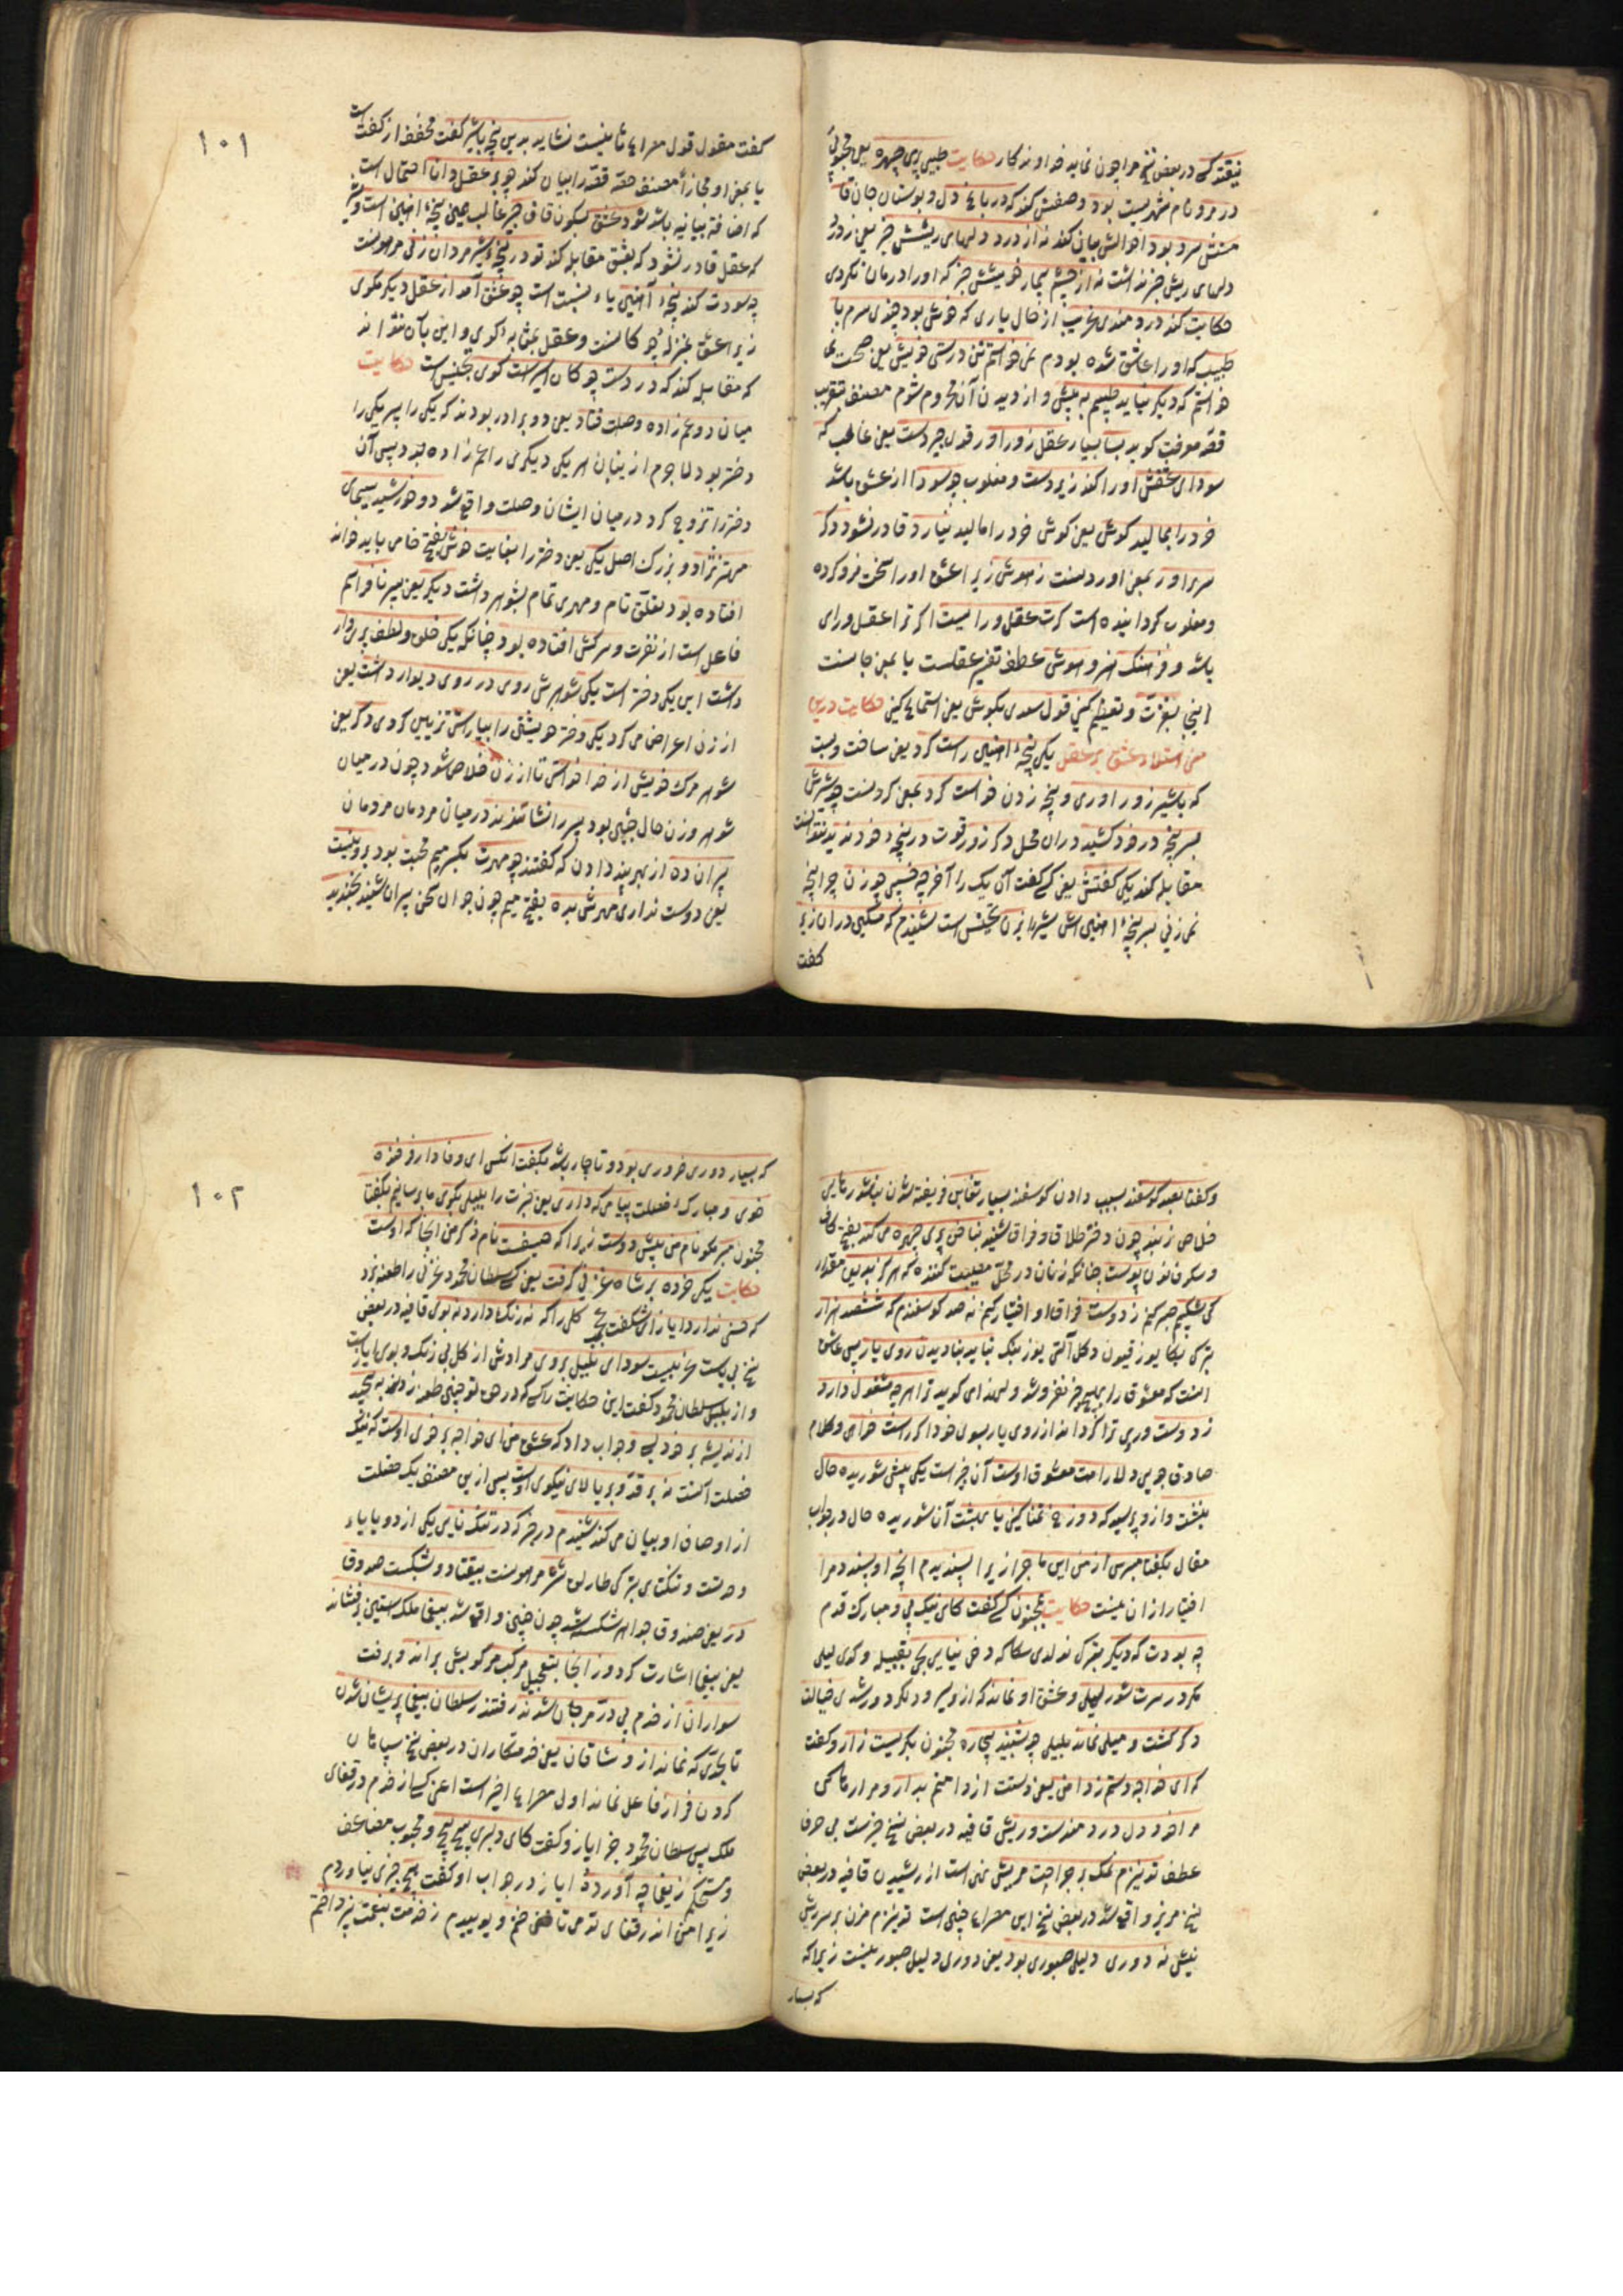 نیفتد کسی در بعض نسخ مرا چون نماید خداوندگار حکایت طبیبی پری چهره یعنی محبوبی
در مرو نام شهریست بود وصفش کند که در باغ دل و بوستان جان قا
متش سرو بود احوالش بیان کند نه از درد دلهای ریشش خبر یعنی زدرد
دلهای ریش خبر نداشت نه از چشم بیمار خویشش خبر که او را درمان نکردی
حکایت کند دردمندی غریب از حال یاری که خوش بود چندی سرم با
طبیب که او را عاشق شده بودم نمی خواستم تن درستی خویش یعنی صحت نمی
خواستم که دیگر نیاید طبیبم به پیش و از دیدن آن محروم شوم مصنف بتقریب
قصه موعظت گوید بسا بسیار عقل زوراور قوی چیردست یعنی غالب که
سودای عشقش او را کند زیردست و مغلوب چو سودا از عشق باشد
خرد را بمالید گوش یعنی گوش خرد را مالید نیارد قادر نشود دگر
سر براورد بمعنی اوردنست ز هوش زیرا عشق او را سخت فرو کرده
و مغلوب گردانیده است گرت عقل و رائیست اگر ترا عقل و رای
باشد و فرهنگ هنر و هوش عطف تفسیر عقلست یا بمعنی جانست
اینجا بعزت و تعظیم کنی قول سعدی بگوش یعنی استماع کنی حکایت درین
معنی استیلاء عشق بر عقل یکی پنجهٔ آهنین راست کرد یعنی ساخت و بست
که با شیر زوراوری و پنجه زدن خواست کرد بمعنی کردنست چو شیرش
بسر پنجه در خود کشید دران محل دگر زور قوت در پنجهٔ خود ندید نتوانست
مقابله کند یکی گفتش یعنی کسی گفت آن یک را آخر چه خسپی چو زن چرا پنجه
نمی زنی بسر پنجهٔ آهنین اش شیر را بزن تجنیس است شنیدم که مسکین دران زیر
گفت
۱۰۱
گفت مقول قول مصراع ثانیست نشاید بدین پنجه با شیر گفت مخفف از گفتن است
یا بمعنی او مجازاً مصنف حصه قصه را بیان کند چو بر عقل دانا احتمال است
که اضافه بیانیه باشد شود عشق بسکون قاف چیر غالب همین پنجهٔ آهنین است و شیر
که عقل قادر نشود که بعشق مقابله کند تو در پنجهٔ شیر مردان زنی مردانست
چه سودت کند پنجهٔ آهنی یاء نسبت است چو عشق آمد از عقل دیگر مگوی
زیرا عشق بمنزلهٔ چوگانست و عقل بمثابهٔ گوی و این بآن نتواند
که مقابله کند که در دست چوگان اسیر است گوی تجنیس است حکایت
میان دو عم زاده وصلت فتاد یعنی دو برادر بودند که یکی را پسر یکی را
دختر بود لاجرم از ینان هر یکی دیگری را عم زاده بود پس آن
دختر را تزویج کرد در میان ایشان وصلت واقع شد دو خورشید سیمای
مهتر نژاد و بزرگ اصل یکی یعنی دختر را بغایت خوش بفتح خا می باید خواند
افتاده بود تعلق تام و مهری تمام بشوهر داشت دیگر یعنی پسر نافر اسم
فاعل است از نفرت و سرکش افتاده بود چنانکه یکی خلق و لطف پری وار
داشت این یکی دختر است یکی شوهرش روی در روی دیوار داشت یعنی
از زن اعراض می کرد یکی دختر خویشتن را بیاراستی تزیین کردی دگر یعنی
شوهر مرگ خویش از خدا خواستی تا از زن خلاص شود چون در میان
شوهر و زن حال چنین بود پسر را نشاندند در میان مردمان مردمان
پیران ده از بهر پند دادن که گفتند چو مهرت بکسر میم محبت بود برو نیست
یعنی دوست نداری مهرش بده بفتح میم چون جوان سخن پیران شنید بخندید
و گفتا بصد گوسفند بسبب دادن گوسفند بسیار تغابن فریفته شدن نباشد رهایی
خلاص ز بند چون دختر طلاق و فراق شنید بناخن پری چهره می کند بفتح کاف
و سکون نون پوست چنانکه زنان در محل مصیبت کنند که هرگز بدین مقدار
کی شکیبم صبر کنم ز دوست فراق او اختیار کنم نه صد گوسفندم که ششصد هزار
بترکی بکا یوز قیون دکل آلتی یوز بیک نباید بنادیدن روی یار پس عاشق
انست که معشوق را بهیچ چیز نفروشد و لهذا می گوید ترا هرچه مشغول دارد
ز دوست و پری ترا گرداند از روی یار بسوی خود اگر راست خواهی و کلام
صادق جویی دلارامت معشوق اوست آن چیز است یکی پیش شوریده حال
بنشست و ازو پرسید که دوزخ تمنا کنی یا بهشت آن شوریده حال در جواب
مقال بگفتا مپرس از من این ماجرا زیرا پسندیدم انچه او پسندد مرا
اختیار ازان نیست حکایت بمجنون کسی گفت کای نیک پی و مبارک قدم
چه بودت که دیگر بترکی نه اولدی سکا که دخی نیایی بحی بقبیله و کوی لیلی
مگر در سرت شور لیلی و عشق او نماند که ازو سر و دیگر دور شدی خیالت
دگر گشت و میلی نماند بلیلی چو بشنید بیچاره مجنون بگریست زار و گفت
که ای خواجه دستم ز دامن یعنی دستت از دامنم بدار و مرا رها کن
مرا خود دل دردمندست و ریش قافیه در بعض نسخ خیزست بی حرف
عطف تو نیزم نمک بر جراحت مریش نهی است از ریشیدن قافیه در بعض
نسخ مریز واقع شد در بعض نسخ این مصراع چنین است تو نیزم مزن بر سر ریش
نیش نه دوری دلیل صبوری بود یعنی دوری دلیل صبور نیست زیرا که
که بسیار
۱۰۲
که بسیار دوری ضروری بود و ناچار باشد بگفت انکس ای وفادار فرخنده
خوی و مبارک خصلت پیامی که داری یعنی خبرت را بلیلی بگوی ما برسانیم بگفتا
مجنون مبر مکو نام من پیش دوست زیرا که حیفست نام ذکر من انجا که اوست
حکایت یکی خرده بر شاه غزنین گرفت یعنی کسی سلطان محمود غزنی را طعنه زد
که حسنی ندارد ایاز ای شگفت عجب گلی را که نه رنگ دارد نه بوی قافیه در بعض
نسخ بی پست غریبست سودای بلبل بروی مرادش از گل بی رنگ و بوی ایازست
و از بلبل سلطان محمود گفت این حکایت را کسی که در حق تو چنین طعن زد بپیچید
از اندیشه بر خود بسی و جواب داد که عشق من ای خواجه بر خوی اوست که نیکو
خصلت است نه بر قد و بر بالای نیکوی اوست پس از ین مصنف یک خصلت
از اوصاف او بیان می کند شنیدم در خبر که در تنگ نایی یکی از دو یا یاء
وحدتست و تنکنای بترکی طار لق شتر مر هوست بیفتاد و بشکست صندوق
در یعنی صندوق جواهر شکسته شد چون چنین واقع شد بیغما ملک استین بر فشاند
یعنی بیغما اشارت کرد و ز انجا بتعجیل مرکب مرکوبش براند و برفت
سواران از خدم پی در مرجان شدند رفتند ز سلطان بیغما پریشان شدند
تا بحدی که نماند از وشاقان یعنی خدمتکاران در بعض نسخ سپاهان
گردن فراز فاعل نماند اول مصراع اخیر است اعنی کسی از خدم در قفای
ملک پس سلطان محمود جز ایاز و گفت کای دلبری پیچ پیچ و محبوب مضاعف
و مستحکم ز یغما چه آوردهٔ ایاز در جواب او گفت هیچ چیزی نیاوردم
زیرا من اندر قفای تو می تاختم و پوییدم ز خدمت بنعمت نپرداختم